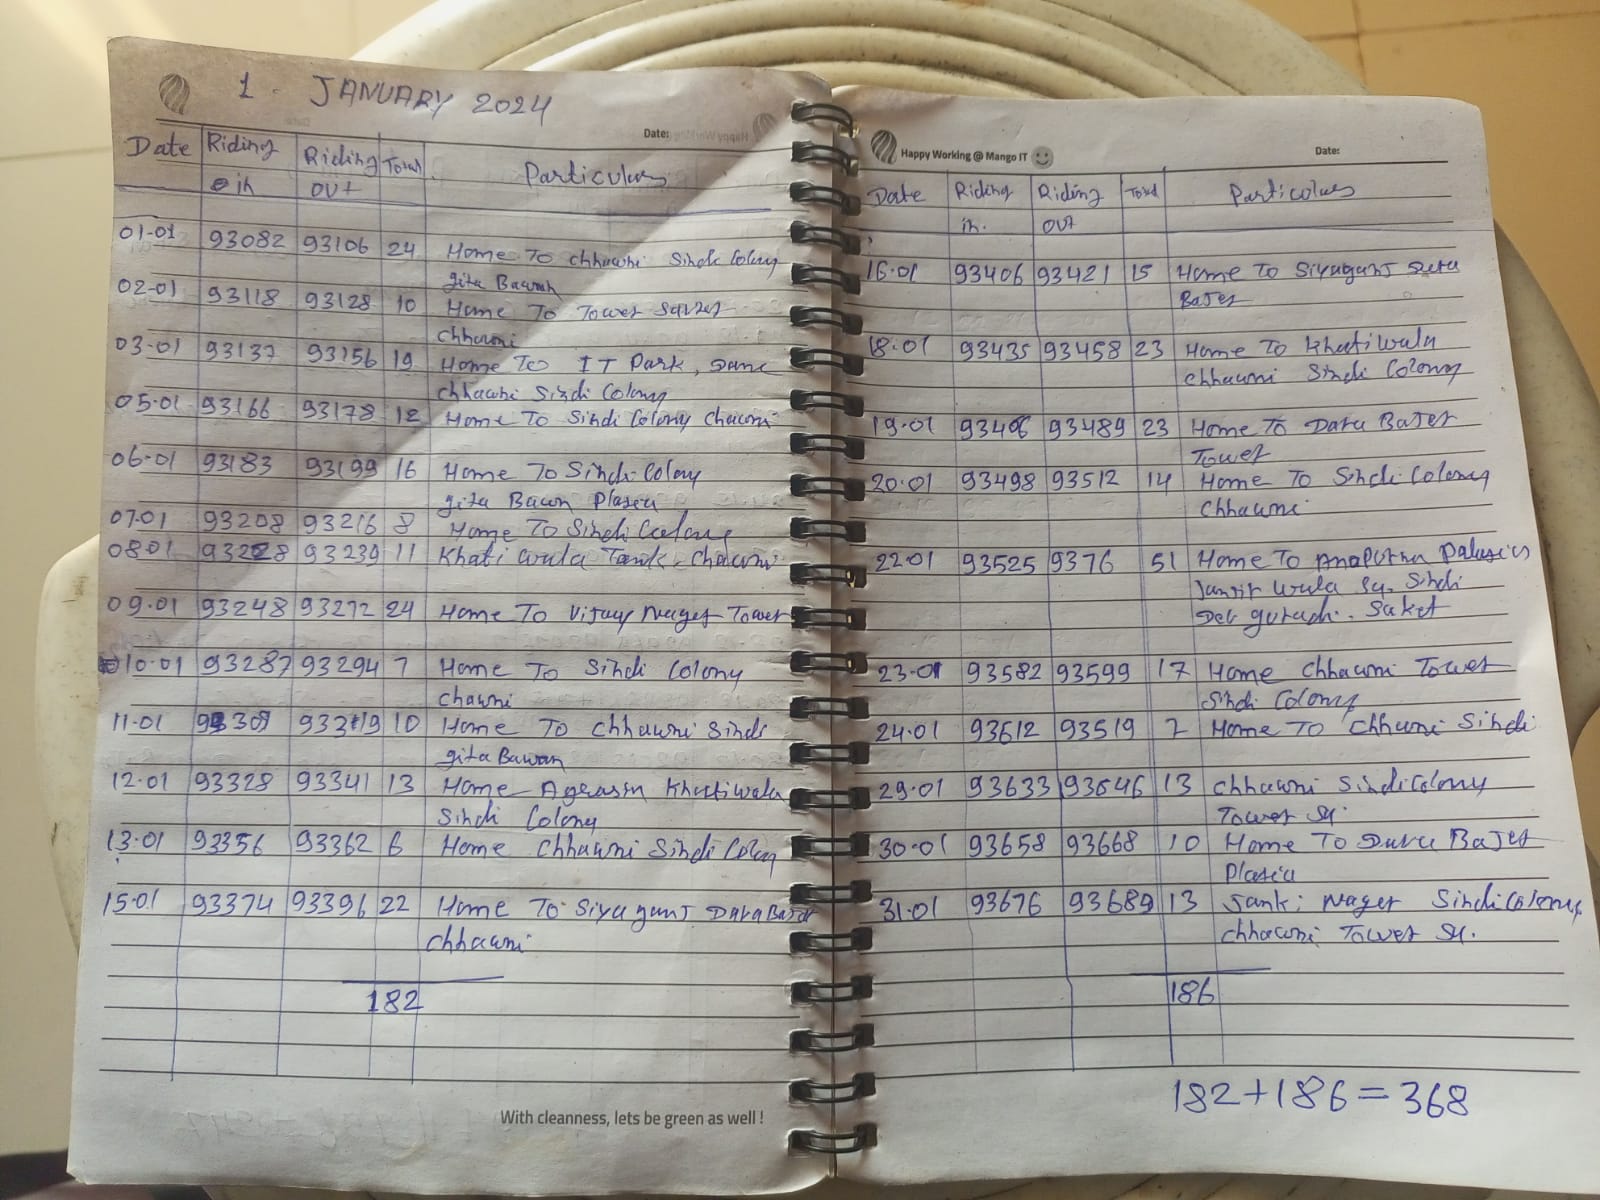 1. JANUARY 2024
Date:
Date Riding Riding Total Particulars
in out
01-01 93082 93106 24 Home To chhawni Sindi Colony
gita Bawan
02-01 93118 93128 10 Home To Tower
chhawni
03-01 93137 93156 19 Home To IT Park,
chhawni Sindi Colony
05-01 93166 93178 12 Home To Sindi Colony Chawni
06-01 93183 93199 16 Home To Sindi Colony
gita Bawn Plasia
07-01 93208 93216 8 Home To Sindi
08-01 93228 93239 11 Khati wala Tank - Chawni
09-01 93248 93272 24 Home To Vijay Nager Tower
10-01 93287 93294 7 Home To Sindi Colony
chawni
11-01 93309 93319 10 Home To Chhawni Sindi
gita Bawan
12-01 93328 93341 13 Home Agrasin Khatiwala
Sindi Colony
13-01 93356 93362 6 Home Chhawni Sindi Colony
15-01 93374 93396 22 Home To Siyaganj Data Bajer
chhawni
182
With cleanness, lets be green as well !
Happy Working @ Mango IT
Date:
Date Riding Riding Total Particulars
in. out
16-01 93406 93421 15 Home To Siyaganj
Bajer
18-01 93435 93458 23 Home To Khatiwala
chhawni Sindi Colony
19-01 93489 23 Home To Data Bajer
Tower
20-01 93498 93512 14 Home To Sindi Colony
Chhawni
22-01 93525 9376 51 Home To Palasia
wala Sq. Sindi
Saket
23-01 93582 93599 17 Home Chhawni Tower
Sindi Colony
24-01 93612 93519 7 Home To Chhawni Sindi
29-01 93633 93646 13 Chhawni Sindi Colony
Tower Sq.
30-01 93658 93668 10 Home To Bajer
Plasia
31-01 93676 93689 13 Janki Nager Sindi Colony
chhawni Tower Sq.
186
182+186=368